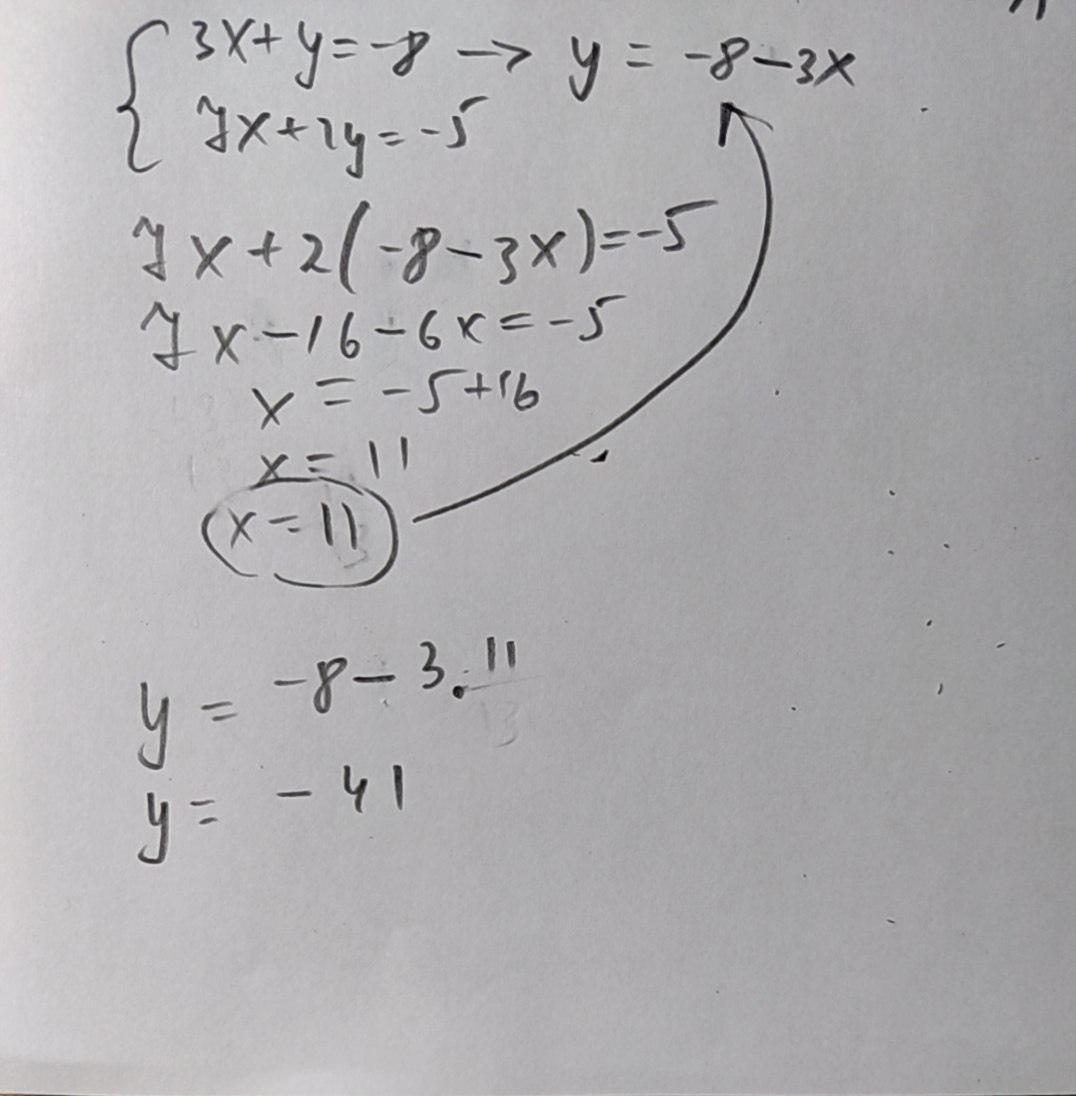 3x+y=-8 → y = -8-3x
7x+2y=-5
7x+2(-8-3x)=-5
7x-16-6x=-5
x = -5+16
x = 11
x = 11
y = -8-3·11
y = -41